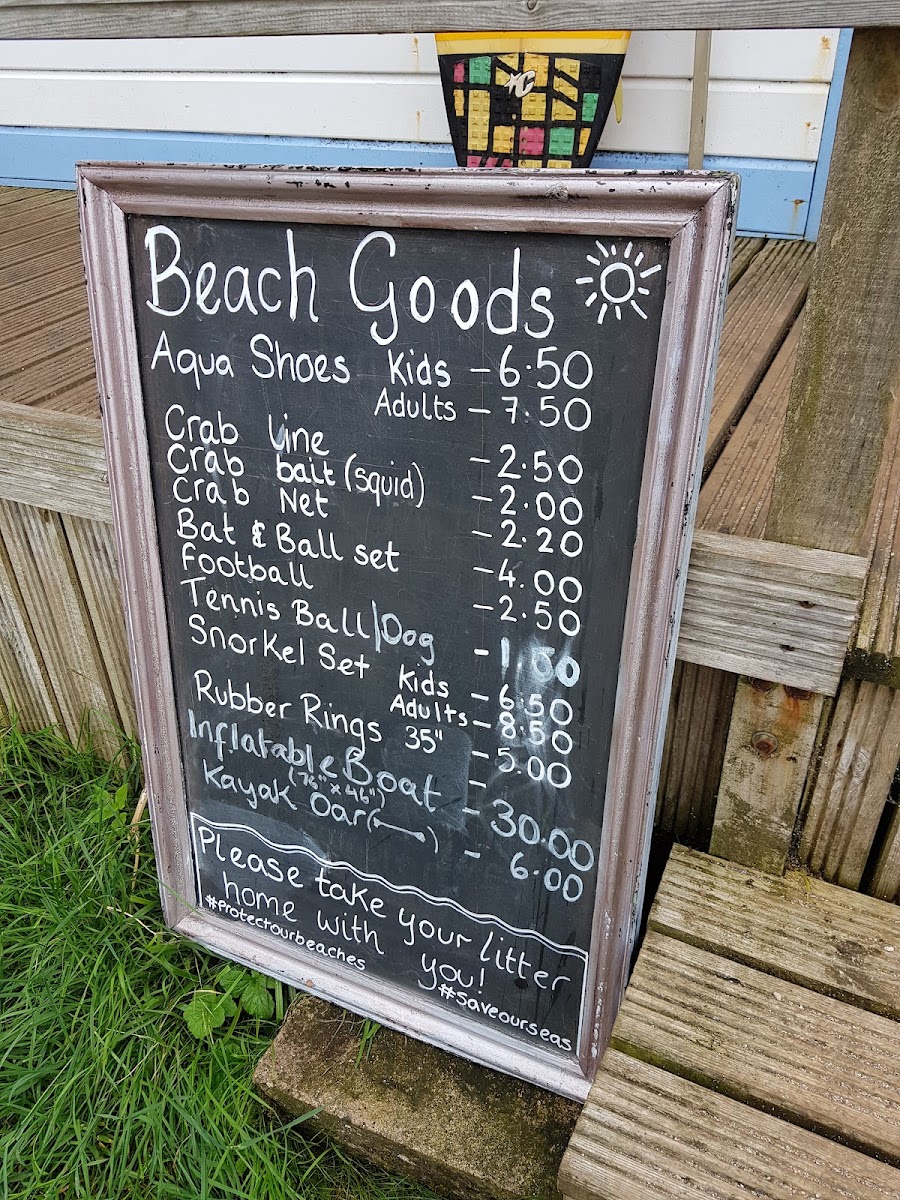 Beach Goods
Aqua Shoes Kids - 6.50
Adults - 7.50
Crab Line - 2.50
Crab bait (squid) - 2.00
Crab Net - 2.20
Bat & Ball set - 4.00
Football - 2.50
Tennis Ball/Dog - 1.00
Snorkel Set Kids - 6.50
Adults - 8.50
Rubber Rings 35" - 5.00
Inflatable Boat - 30.00
(76" x 46")
Kayak Oar - 6.00
Please take your litter
home with you!
#protectourbeaches
#saveourseas